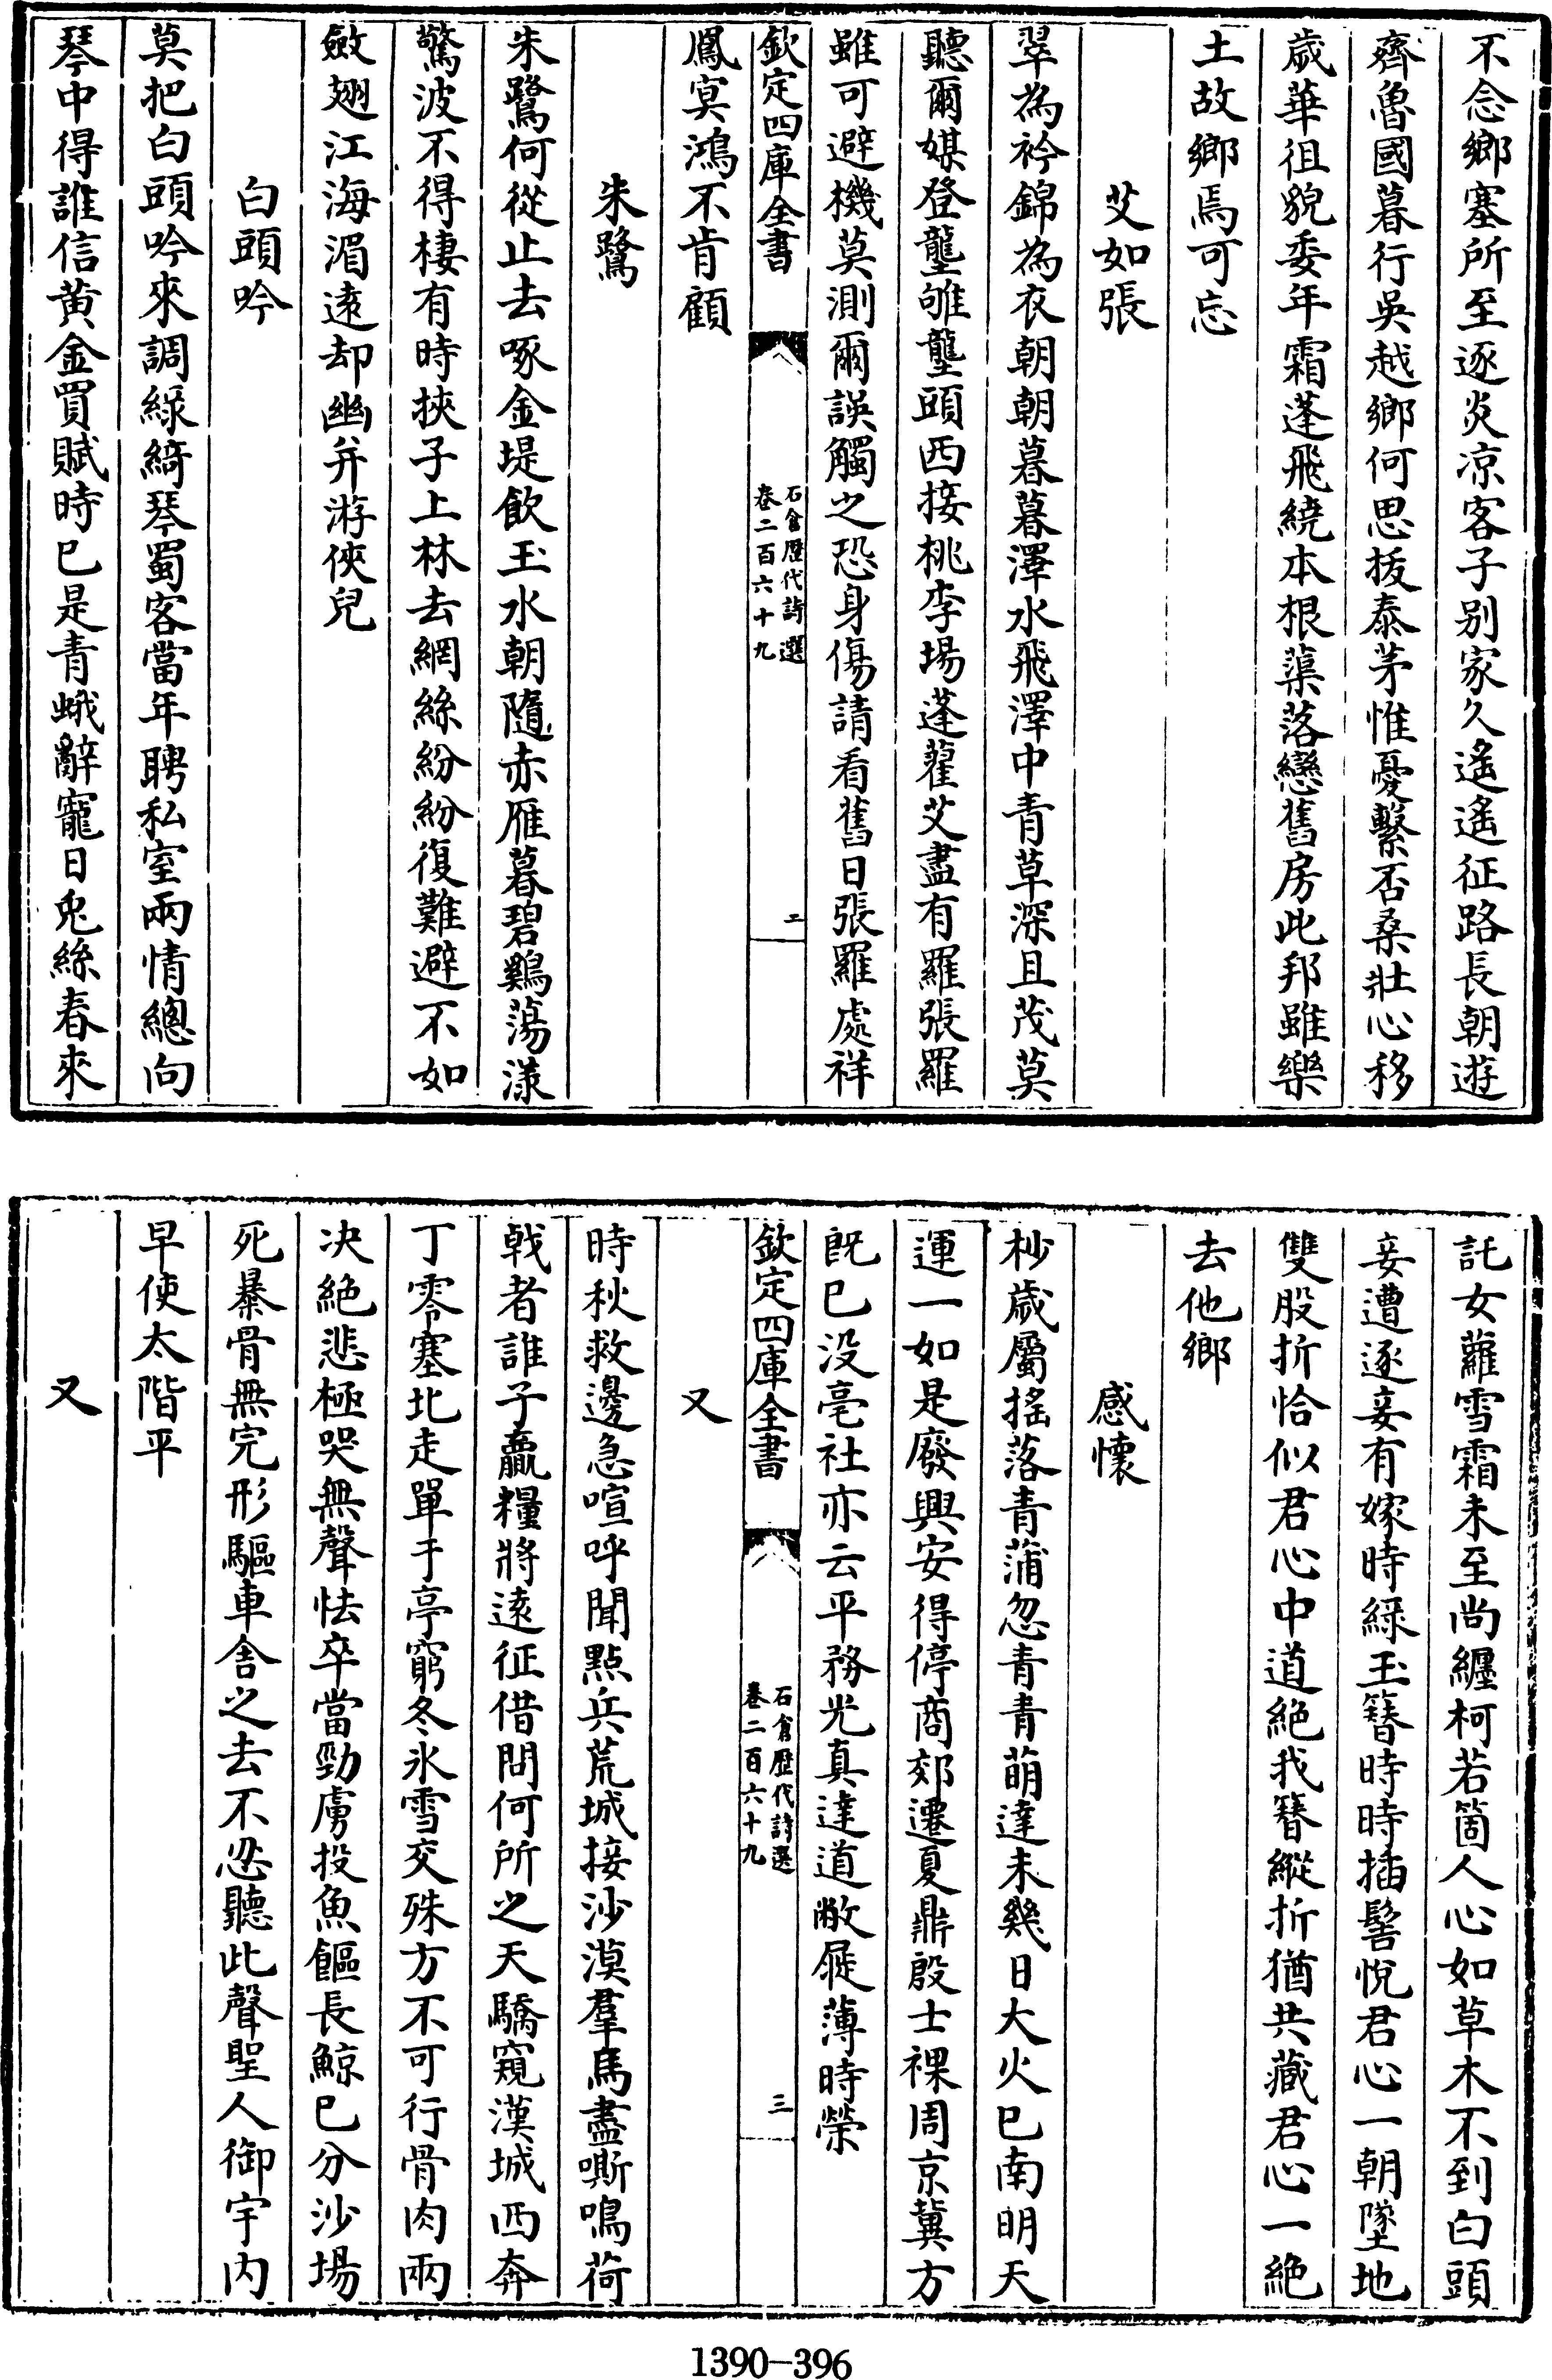 不念鄉塞所至逐炎凉客子别家久遙遙征路長朝遊
齊魯國暮行吳越鄉何思拔泰茅惟憂繫否桑壯心移
歲華徂貌委年霜蓬飛繞本根蕖落戀舊房此邦雖樂
土故鄉焉可忘
艾如張
翠為衿錦為衣朝朝暮暮澤水飛澤中青草深且茂莫
聽爾媒登壟雊壟頭西接桃李場蓬藋艾盡有羅張羅
雖可避機莫測爾誤觸之恐身傷請看舊日張羅處祥
欽定四庫全書
石倉歷代詩選
卷二百六十九
二
鳳冥鴻不肯顧
朱鷺
朱鷺何從止去啄金堤飲玉水朝隨赤雁暮碧鷄蕩漾
驚波不得棲有時挾子上林去網絲紛紛復難避不如
斂翅江海湄遠却幽并游俠兒
白頭吟
莫把白頭吟來調綠綺琴蜀客當年聘私室兩情總向
琴中得誰信黄金買賦時已是青蛾辭寵日兎絲春來
託女蘿雪霜未至尚纏柯若箇人心如草木不到白頭
妾遭逐妾有嫁時綠玉簪時時插髻悅君心一朝墜地
雙股折恰似君心中道絕我簪縱折猶共藏君心一絕
去他鄉
感懷
杪歲屬搖落青蒲忽青青萌達未幾日大火已南明天
運一如是廢興安得停商郊遷夏鼎殷士祼周京冀方
旣已没亳社亦云平務光真達道敝屣薄時榮
欽定四庫全書
石倉歷代詩選
卷二百六十九
三
又
時秋救邊急喧呼聞點兵荒城接沙漠羣馬盡嘶鳴荷
戟者誰子贏糧將遠征借問何所之天驕窺漢城西奔
丁零塞北走單于亭窮冬氷雪交殊方不可行骨肉兩
决絕悲極哭無聲怯卒當勁虜投魚餧長鯨已分沙場
死暴骨無完形驅車舍之去不忍聽此聲聖人御宇内
早使太階平
又
1390-396